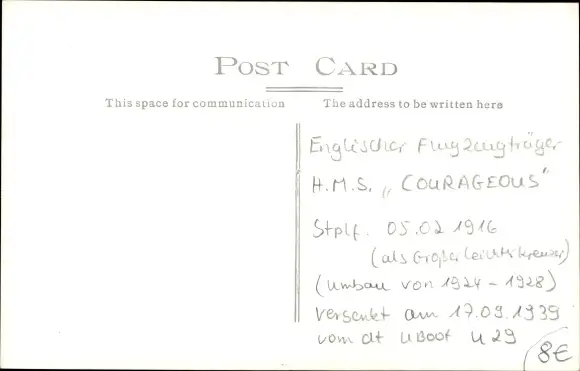 POST CARD
This space for communication
The address to be written here
Englischer Flugzeugträger
H.M.S. „COURAGEOUS"
Stplf. 05.02 1916
(als Großer leichter kreuzer)
(Umbau von 1924 - 1928)
versenkt am 17.09.1939
vom dt UBoot U 29
8€